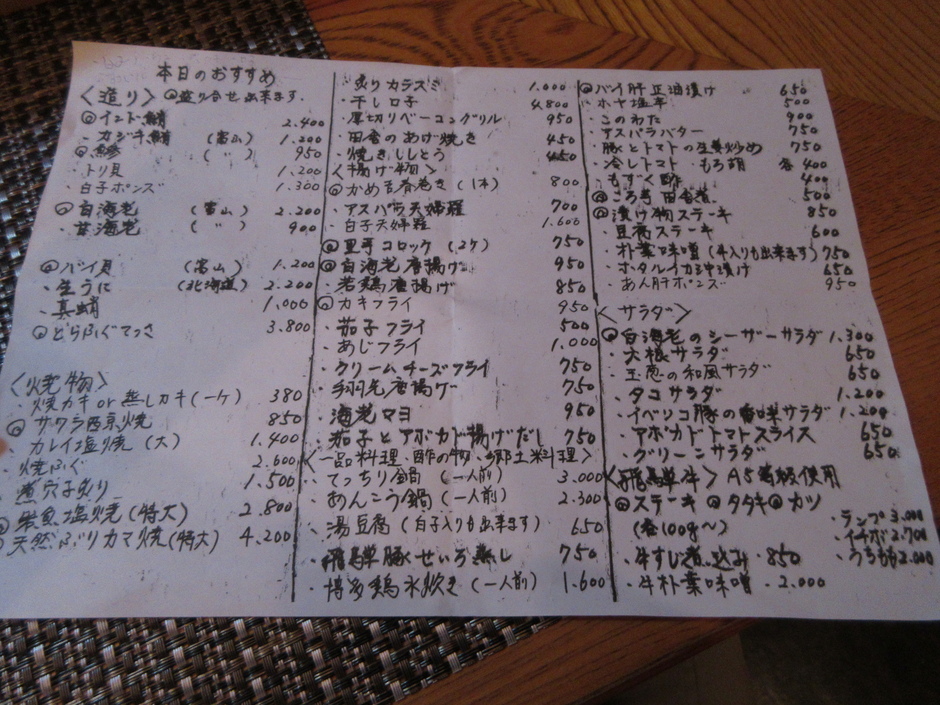 本日のおすすめ
<造り> ◎盛り合せ出来ます.
◎インド鮪 2.400
・カジキ鮪 (富山) 1.200
◎鯵 (〃) 950
・トリ貝 1.200
・白子ポンズ 1.300
◎白海老 (富山) 2.200
・甘海老 (〃) 900
◎バイ貝 (富山) 1.200
・生うに (北海道) 2.200
・真蛸 1.000
◎とらふぐてっさ 3.800
<焼物>
・焼カキor蒸しカキ(一ケ) 380
◎サワラ西京焼 850
・カレイ塩焼(大) 1.400
・焼ふぐ 2.600
・煮穴子炙り 1.500
塩焼(特大) 2.800
◎天然ぶりカマ焼(特大) 4.200
・炙りカラスミ 1.000
・干し口子 4.800
・厚切りベーコングリル 950
・田舎のあげ焼き 450
・焼きししとう 450
<揚げ物>
◎かめ壱春巻き(1本) 800
・アスパラ天婦羅 700
・白子天婦羅 1.600
◎里芋コロッケ(2ケ) 750
◎白海老唐揚げ 950
・若鶏唐揚げ 850
◎カキフライ 950
・茄子フライ 500
・あじフライ 1.000
・クリームチーズフライ 750
・手羽先唐揚げ 750
・海老マヨ 950
・茄子とアボカド揚げだし 750
<一品料理・酢の物・郷土料理>
・てっちり鍋(一人前) 3.000
・あんこう鍋(一人前) 2.300
・湯豆腐(白子入りも出来ます) 650
・飛騨豚せいろ蒸し 750
・博多鶏水炊き(一人前) 1.600
◎バイ肝正油漬け 650
・ホヤ塩辛 500
・このわた 900
・アスパラバター 750
・豚とトマトの生姜炒め 750
・冷しトマト・もろ胡 各400
・もずく酢 400
◎ころ芋田舎煮 500
◎漬け物ステーキ 850
・豆腐ステーキ 600
・朴葉味噌(牛入りも出来ます) 750
・ホタルイカ沖漬け 650
・あん肝ポンズ 950
<サラダ>
◎白海老のシーザーサラダ 1.300
・大根サラダ 650
・玉葱の和風サラダ 650
・タコサラダ 1.200
・イベリコ豚の香味サラダ 1.200
・アボカドトマトスライス 650
・グリーンサラダ 650
<飛騨牛> A5等級使用
◎ステーキ ◎タタキ ◎カツ
(各100g〜) ・ランプ 3.000
・イチボ 2.700
・うちもも 2.000
・牛すじ煮込み・850
・牛朴葉味噌・2.000